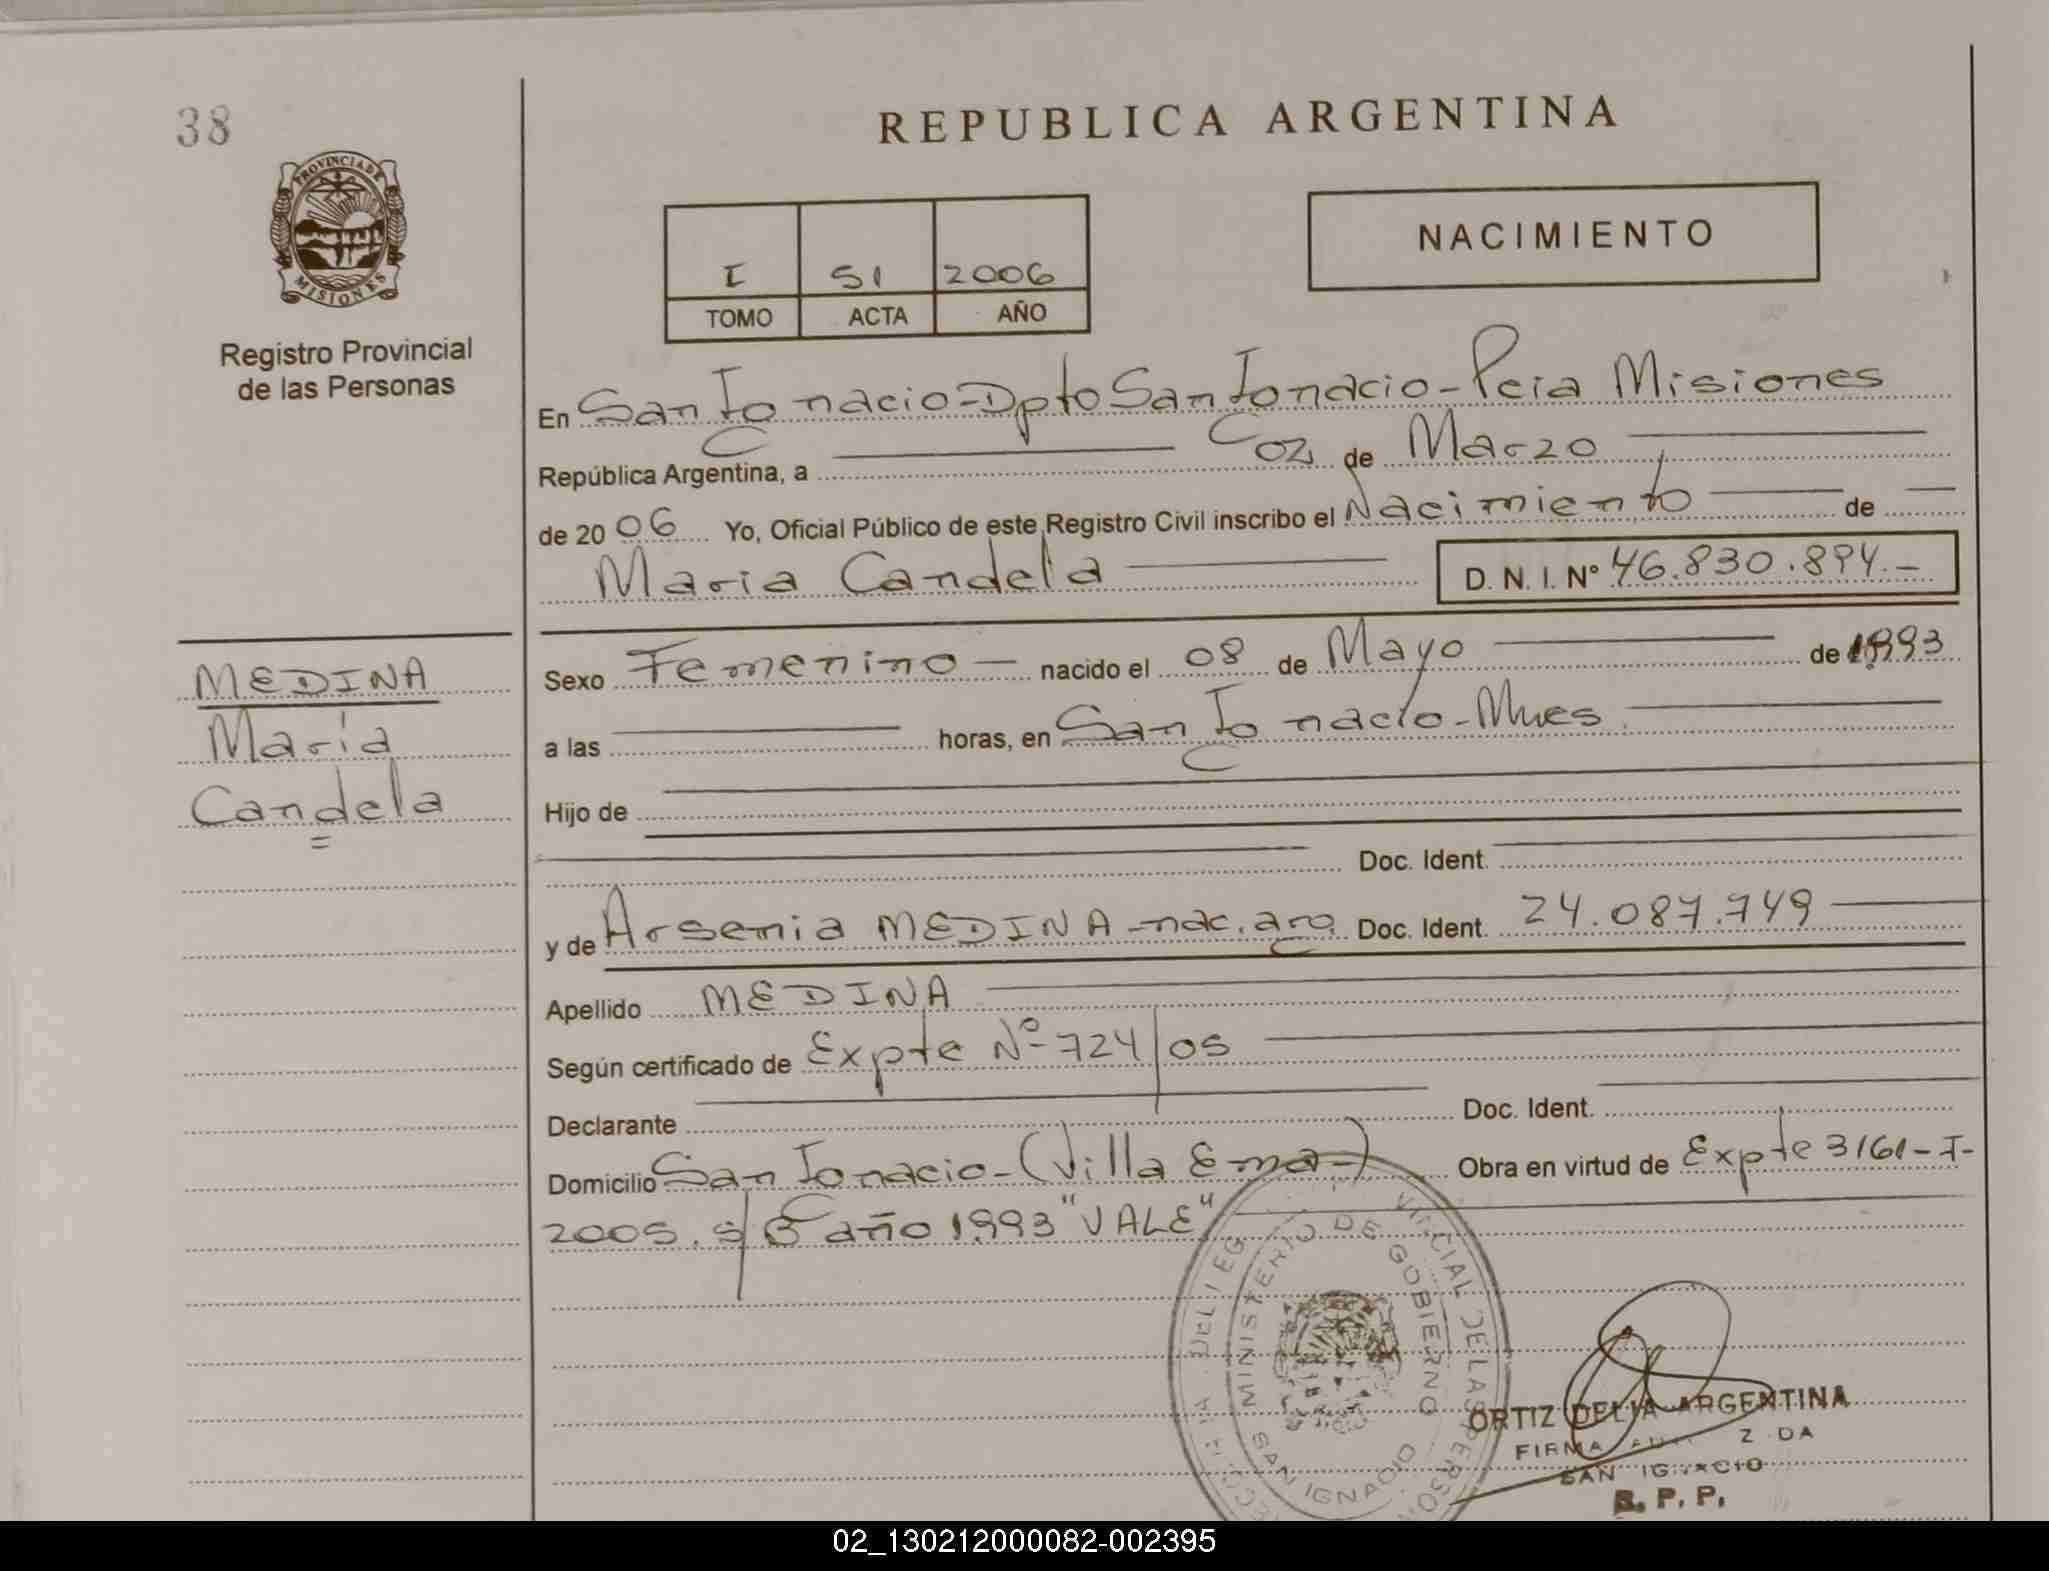 38
REPUBLICA ARGENTINA
PROVINCIA DE
MISIONES
Registro Provincial
de las Personas
NACIMIENTO
I 51 2006
TOMO ACTA AÑO
En San Ignacio-Dpto San Ignacio-Pcia Misiones
República Argentina, a 02 de Marzo
de 20 06 Yo, Oficial Público de este Registro Civil inscribo el Nacimiento de
Maria Candela D. N. I. Nº 46.830.894.-
MEDINA
María
Candela
Sexo Femenino - nacido el 08 de Mayo de 1993
a las horas, en San Ignacio-Mnes
Hijo de
Doc. Ident.
y de Arsenia MEDINA-nac. arg. Doc. Ident. 24.087.749
Apellido MEDINA
Según certificado de Expte Nº 724/05
Declarante Doc. Ident.
Domicilio San Ignacio-(Villa Ema-) Obra en virtud de Expte 3161-I-
2005. s/ año 1993 "VALE"
MINISTERIO DE GOBIERNO
SAN IGNACIO
ORTIZ DELIA ARGENTINA
FIRMA
SAN IGNACIO
R. P. P.
02_130212000082-002395